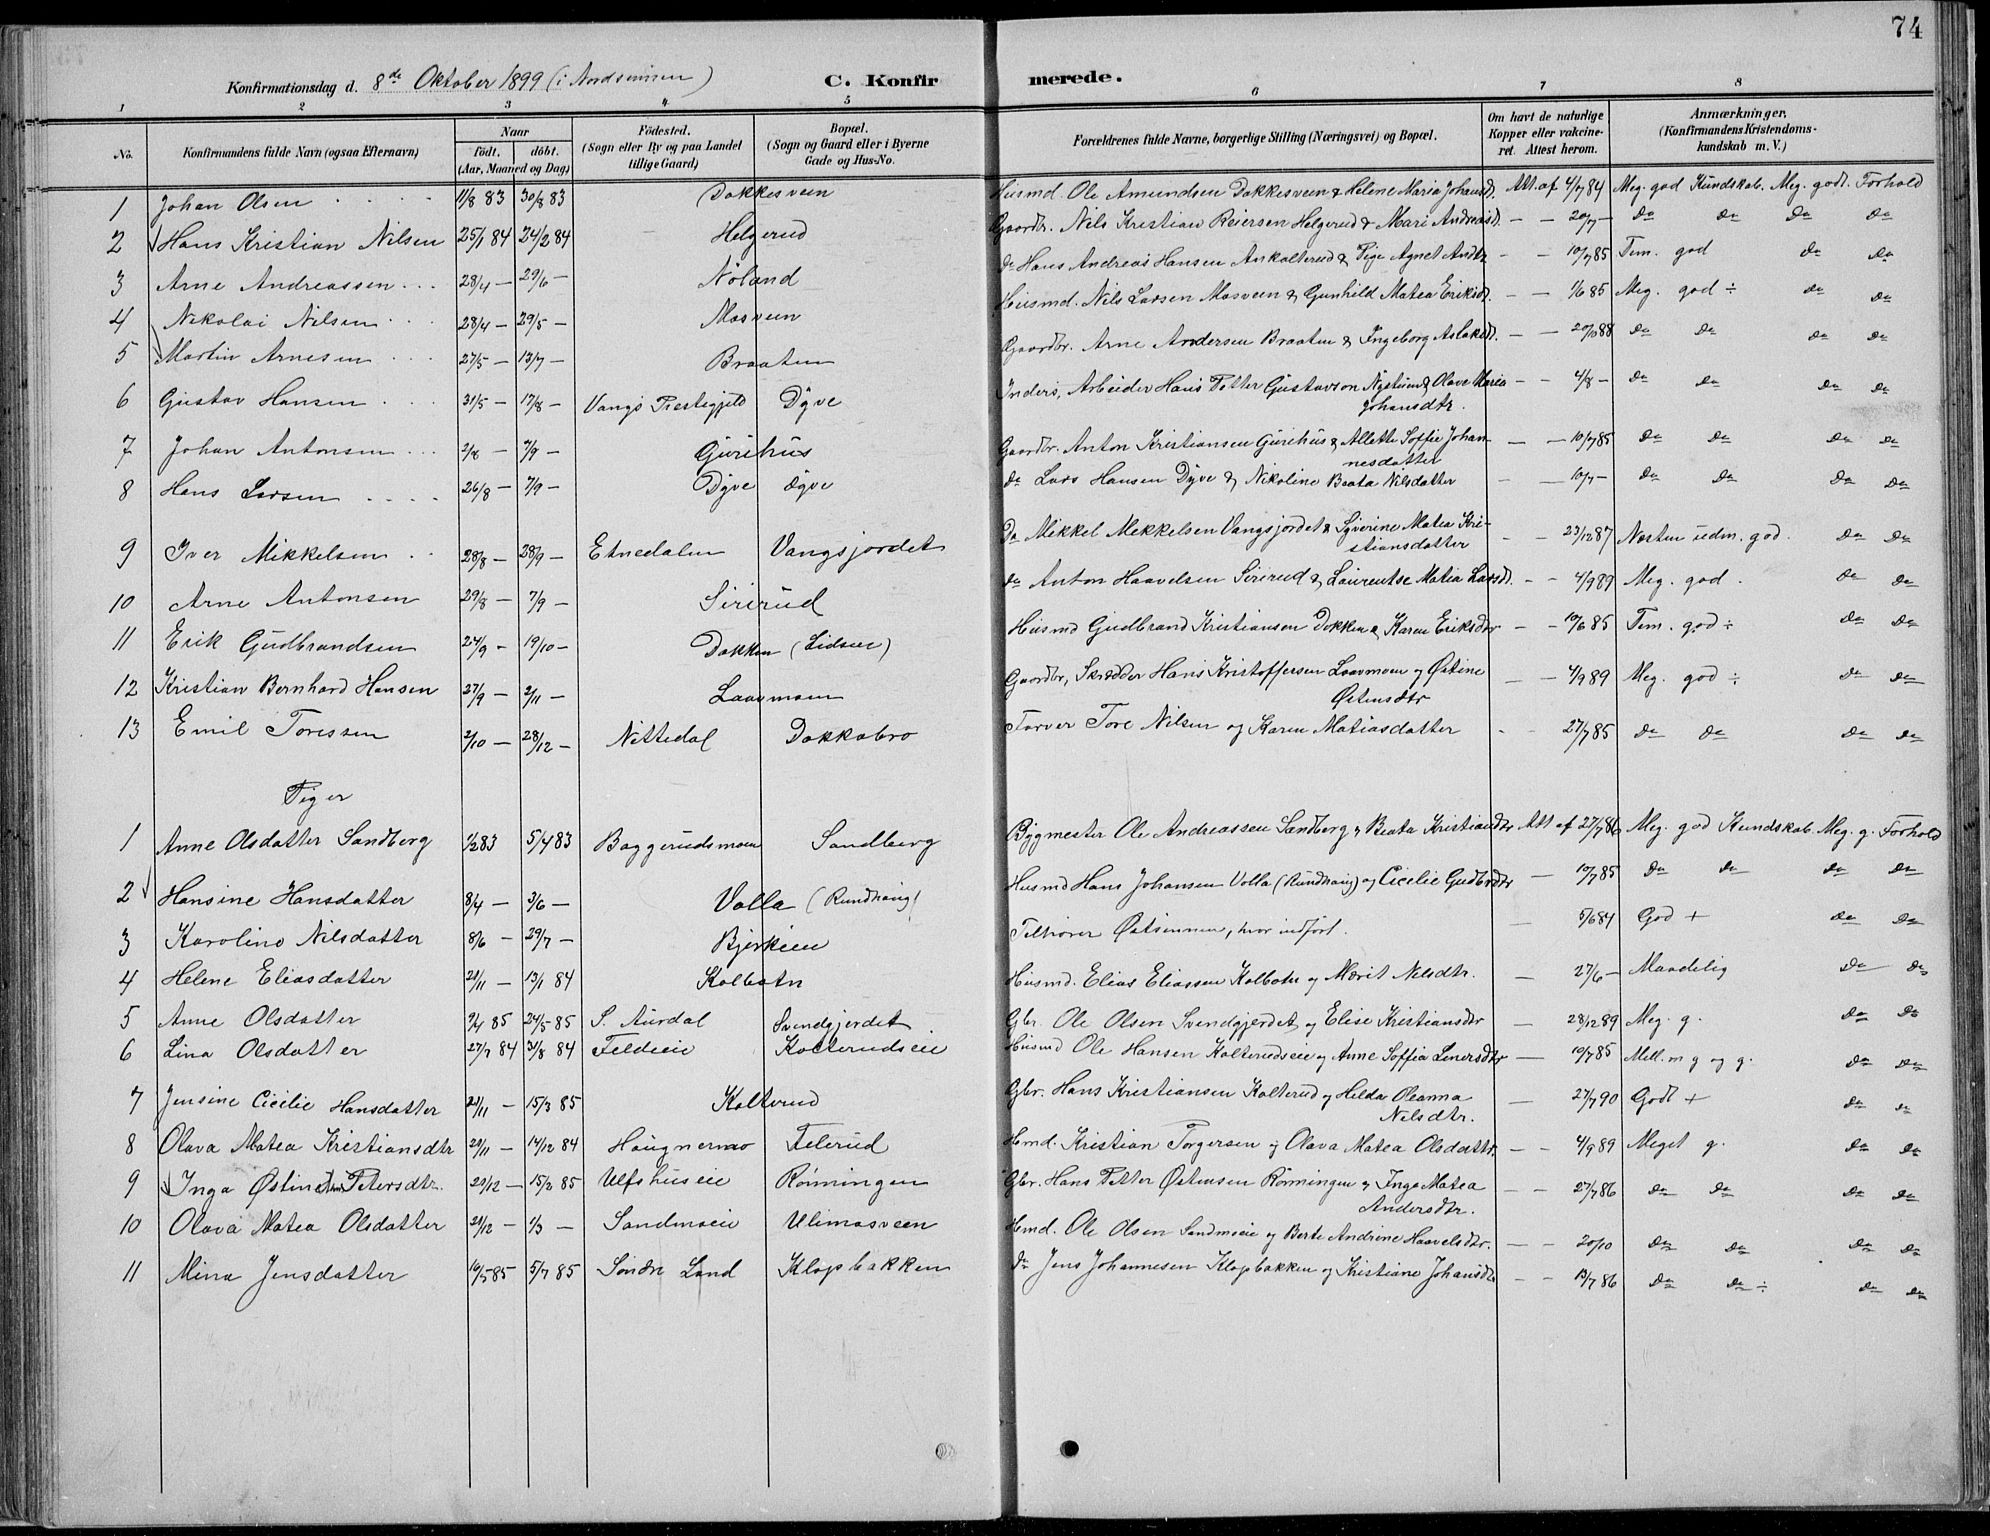 74
Konfirmationsdag d. 8de Oktober 1899 (i Nordsinnen)
C. Konfirmerede.
1 2 3 4 5 6 7 8
No. Konfirmandens fulde Navn (ogsaa Efternavn) Naar födt. döbt. (Aar, Maaned og Dag) Födested. (Sogn eller By og paa Landet tillige Gaard) Bopæl. (Sogn og Gaard eller i Byerne Gade og Hus-No. Forældrenes fulde Navne, borgerlige Stilling (Næringsvei) og Bopæl. Om havt de naturlige Kopper eller vakcineret. Attest herom. Anmærkninger. (Konfirmandens Kristendomskundskab m. V.)
1 Johan Olsen 11/8 83 30/8 83 Dokkesveen Husmd. Ole Amundsen Dokkesveen & Helene Maria Johansd. Att. af 4/7 84 Meg. god Kundskab. Meg. godt. Forhold
2 Hans Kristian Nilsen 25/1 84 24/2 84 Helgerud Gaardbr. Nils Kristian Reiersen Helgerud & Mari Andreasd. — — 20/7 — do do do do
3 Arne Andreassen 28/4 — 29/6 — Nöland do Hans Andreas Hansen Ankolterud & Pige Agnet Andtr — — 10/7 85 Tem. god do do
4 Nikolai Nilsen 28/4 — 29/5 — Mosveen Husmd. Nils Larsen Mosveen & Gunhild Matea Eriksd. — — 1/6 85 Meg. god ÷ do do
5 Martin Arnesen 27/5 — 13/7 — Braaten Gaardbr. Arne Andersen Braaten & Ingeborg Aslaksd. — — 20/10 88 do do do do
6 Gustav Hansen 31/5 — 17/8 — Vangs Prestegjeld Dyve Inders, Arbeider Hans Petter Gustavson Nystuen & Olava Maria Johansdtr. — — 4/8 — do do do do
7 Johan Antonsen 2/8 — 7/9 — Gurihus Gaardbr. Anton Kristiansen Gurihus & Allette Soffie Johannesdatter — — 10/7 85 do do do do
8 Hans Larsen 26/8 — 7/9 — Dyve Dyve do Lars Hansen Dyve & Nikoline Beata Nilsdatter — — 10/7 — do do do do
9 Iver Mikkelsen 28/8 — 28/9 — Etnedalen Vangsjordet Do Mikkel Mekkelsen Vangsjordet & Syverine Matea Kristiansdatter — — 23/12 87 Næsten udm. god. do do
10 Arne Antonsen 29/8 — 7/9 — Sirirud do Anton Haavelsen Sirirud & Laurentse Matia Larsd. — — 4/9 89 Meg. god. do do
11 Erik Gudbrandsen 24/9 — 19/10 — Dokken (Lidseie) Husmd Gudbrand Kristiansen Dokken & Karen Eriksdtr — — 10/6 85 Tem. god ÷ do do
12 Kristian Bernhard Hansen 27/9 — 2/11 — Laavmoen Gaardbr, Skrædder Hans Kristoffersen Laavmoen og Østine Østensdtr — — 4/9 89 Meg. god ÷ do do
13 Emil Toressen 2/10 — 28/12 — Nittedal Dokkabro Farver Tore Nilsen og Karen Matiasdatter — — 27/7 85 do do do do
Piger
1 Anne Olsdatter Sandberg 1/2 83 5/4 83 Baggerudsmoen Sandberg Bygmester Ole Andreassen Sandberg & Beata Kristiandtr Att af 27/7 86 Meg. god Kundskab. Meg. g. Forhold
2 Hansine Hansdatter 8/4 — 3/6 — Volla (Rundhaug) Husmd Hans Johansen Volla (Rundhaug) og Cicilie Gudbrdtr — 10/7 85 do do do do
3 Karoline Nilsdatter 8/6 — 29/7 — Bjerkeien Tilhører Østsinnen, hvor indført. — 5/6 84 God + do do
4 Helene Eliasdatter 21/11 — 13/1 84 Kolbotn Husmd. Elias Eliassen Kolbotn og Marit Nilsdtr. — 27/6 — Maadelig do do
5 Anne Olsdatter 9/4 85 24/5 85 S. Aurdal Svendgjerdet Gbr. Ole Olsen Svendgjerdet og Elise Kristiansdtr — 28/12 89 Meg. g. do do
6 Lina Olsdatter 27/7 84 31/8 84 Feldeie Kolterudseie Husmd Ole Hansen Kolterudseie og Anne Soffia Lenersdtr — 10/7 85 Mell. m g og g. do do
7 Jensine Cicilie Hansdatter 21/11 — 15/3 85 Kolterud Gbr. Hans Kristiansen Kolterud og Hilda Oleanna Nelsdtr. — 27/7 90 Godt + do do
8 Olava Matea Kristiansdtr 29/11 — 14/12 84 Haugnermo Felerud Hmd. Kristian Torgersen og Olava Matea Olsdattr. — — 4/9 89 Meget g. do do
9 Inga Østine Petersdtr. 20/12 — 15/2 85 Ulfshuseie Rønningen Gbr. Hans Petter Østensen Rønningen & Inge Matea Andersdtr. — — 27/7 86 do do do do
10 Olava Matea Olsdatter 21/12 — 1/3 — Sandmoeie Ulimosveen Hmd. Ole Olsen Sandmoeie og Berte Andrine Haavelsdtr. — — 20/10 do do do do
11 Mina Jensdatter 16/5 85 5/7 85 Søndre Land Klopbakken do Jens Johannesen Klopbakken og Kristiane Johansdtr — — 13/7 86 do do ÷ do do